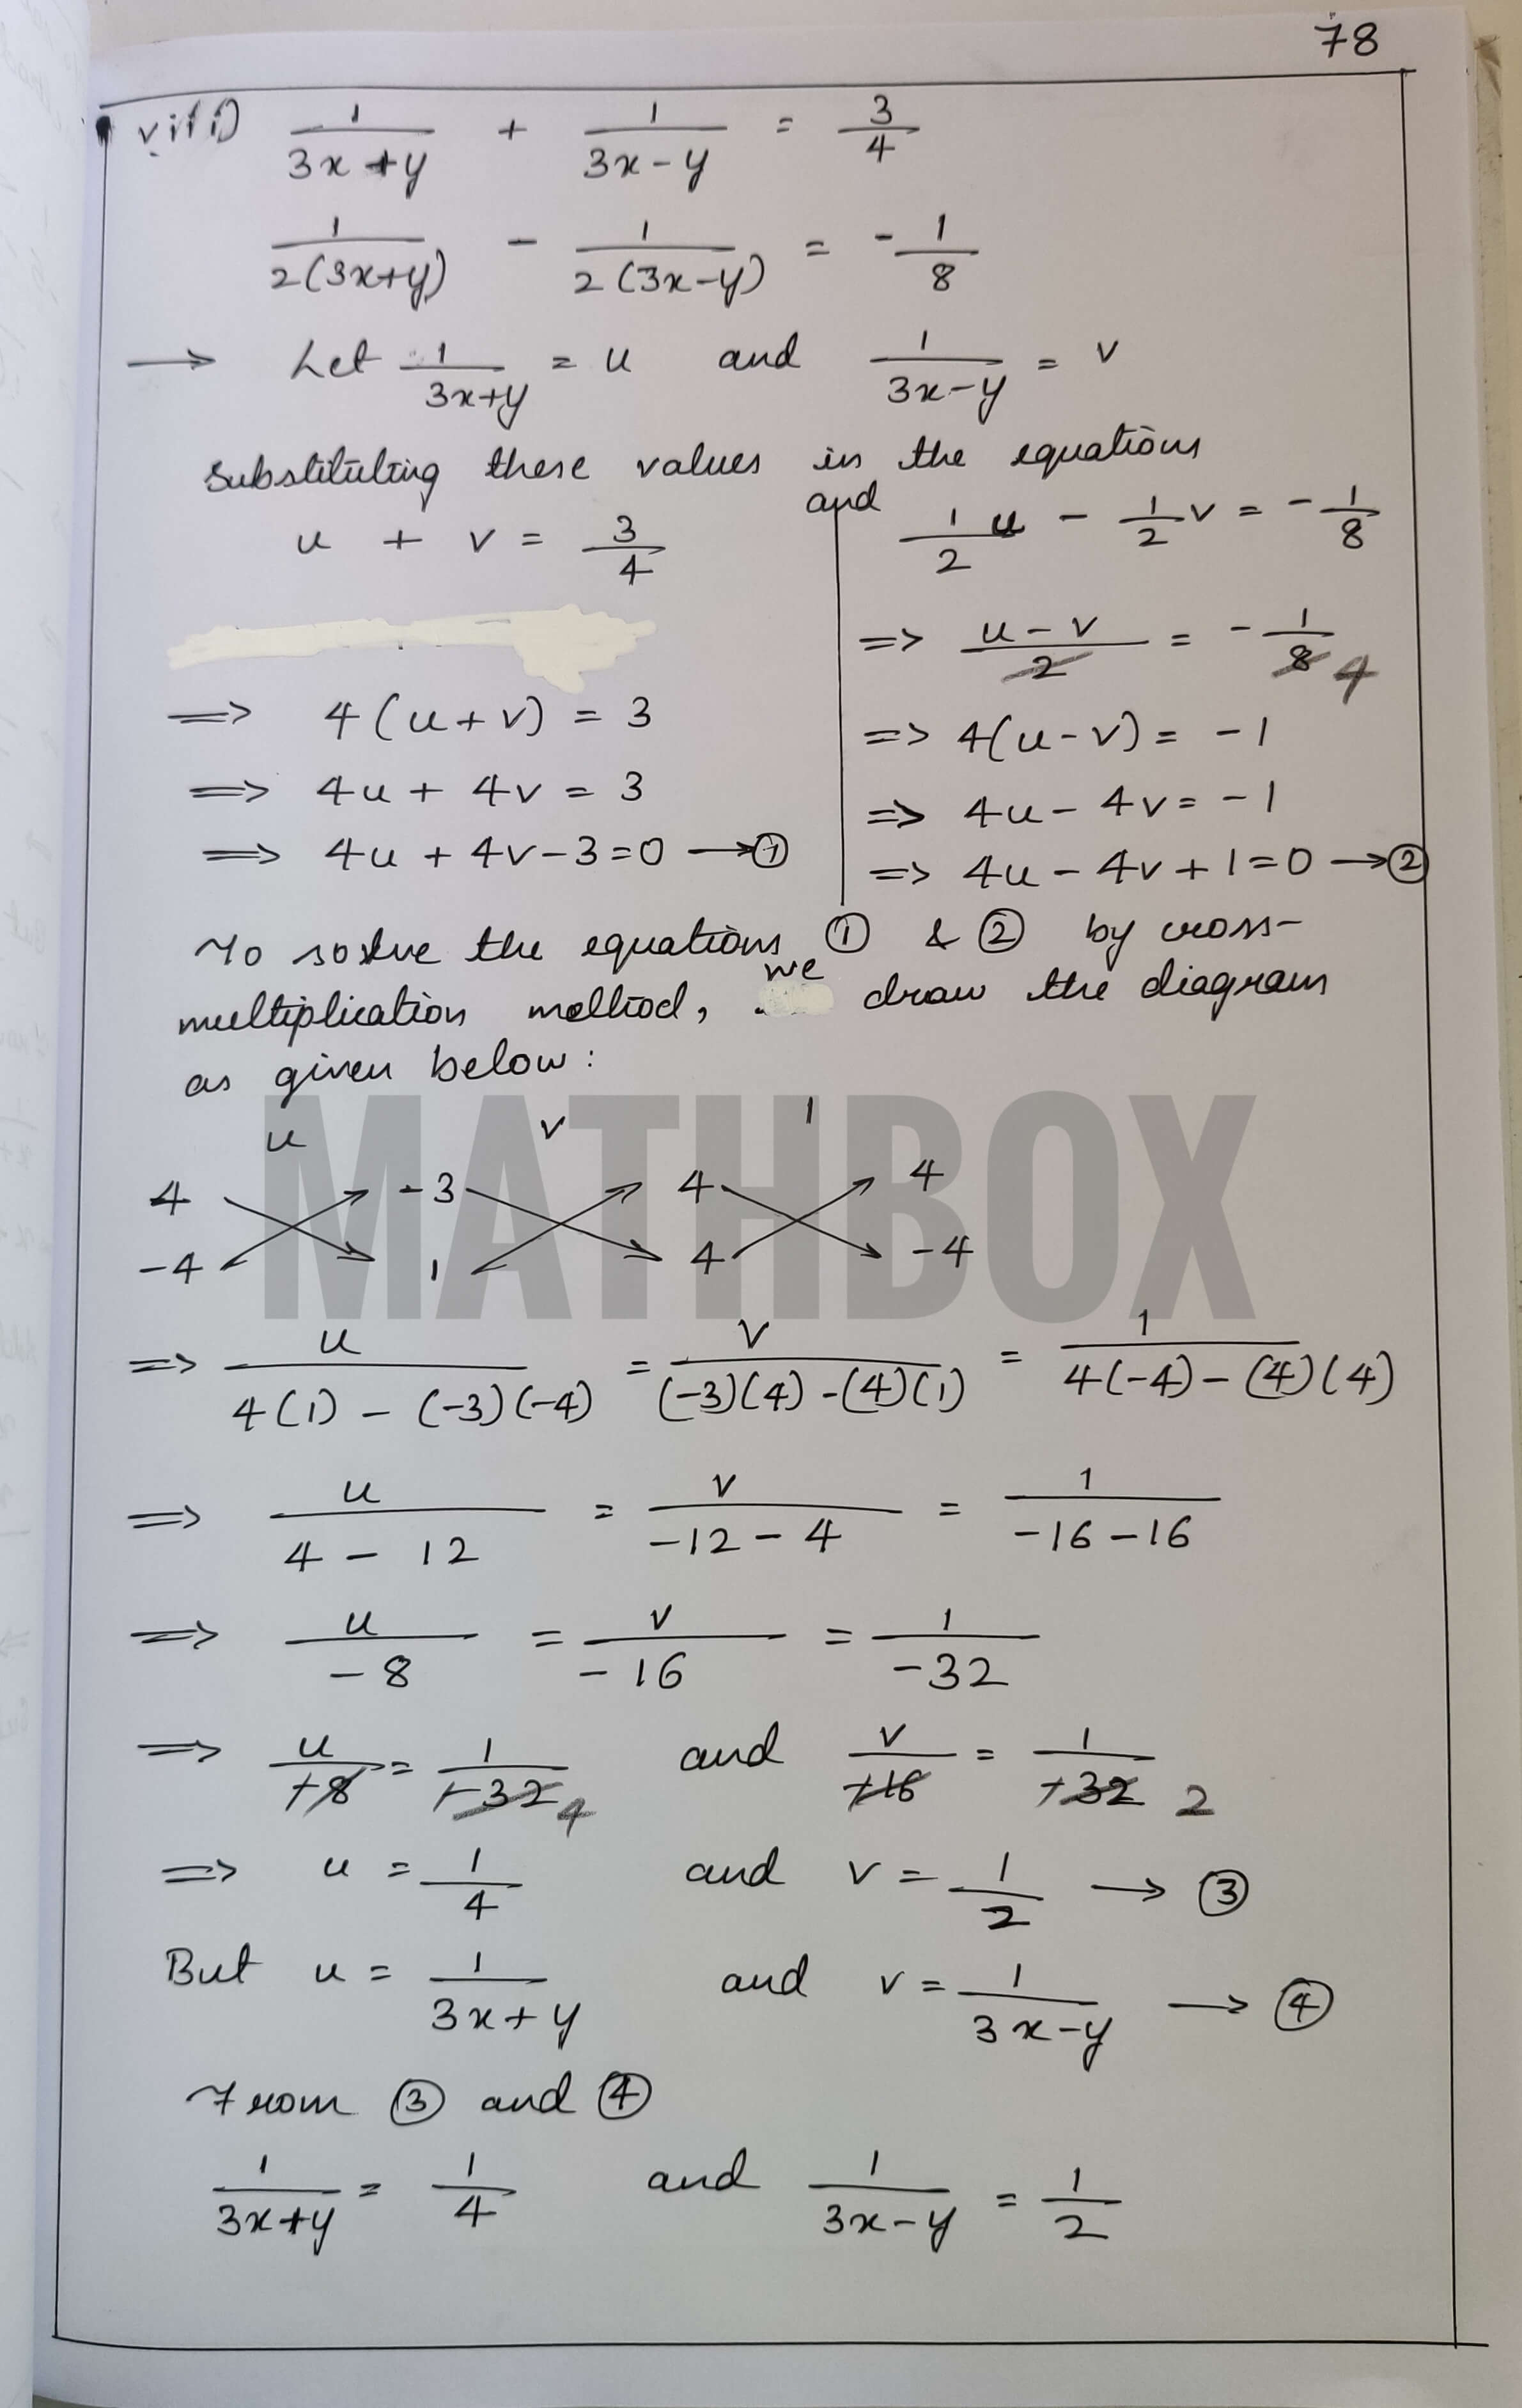 78
viii) 1/(3x+y) + 1/(3x-y) = 3/4
1/2(3x+y) - 1/2(3x-y) = -1/8
→ Let 1/(3x+y) = u and 1/(3x-y) = v
substituting these values in the equations
u + v = 3/4
=> 4(u+v) = 3
=> 4u + 4v = 3
=> 4u + 4v - 3 = 0 → ①
and 1/2 u - 1/2 v = -1/8
=> (u-v)/2 = -1/8 4
=> 4(u-v) = -1
=> 4u - 4v = -1
=> 4u - 4v + 1 = 0 → ②
To solve the equations ① & ② by cross-
multiplication method, we draw the diagram
as given below:
MATHBOX
u v 1
4 -3 4 4
-4 1 4 -4
=> u/(4(1) - (-3)(-4)) = v/((-3)(4) - (4)(1)) = 1/(4(-4) - (4)(4))
=> u/(4 - 12) = v/(-12 - 4) = 1/(-16 - 16)
=> u/-8 = v/-16 = 1/-32
=> u/-8 = 1/-32 4 and v/-16 = 1/-32 2
=> u = 1/4 and v = 1/2 → ③
But u = 1/(3x+y) and v = 1/(3x-y) → ④
From ③ and ④
1/(3x+y) = 1/4 and 1/(3x-y) = 1/2